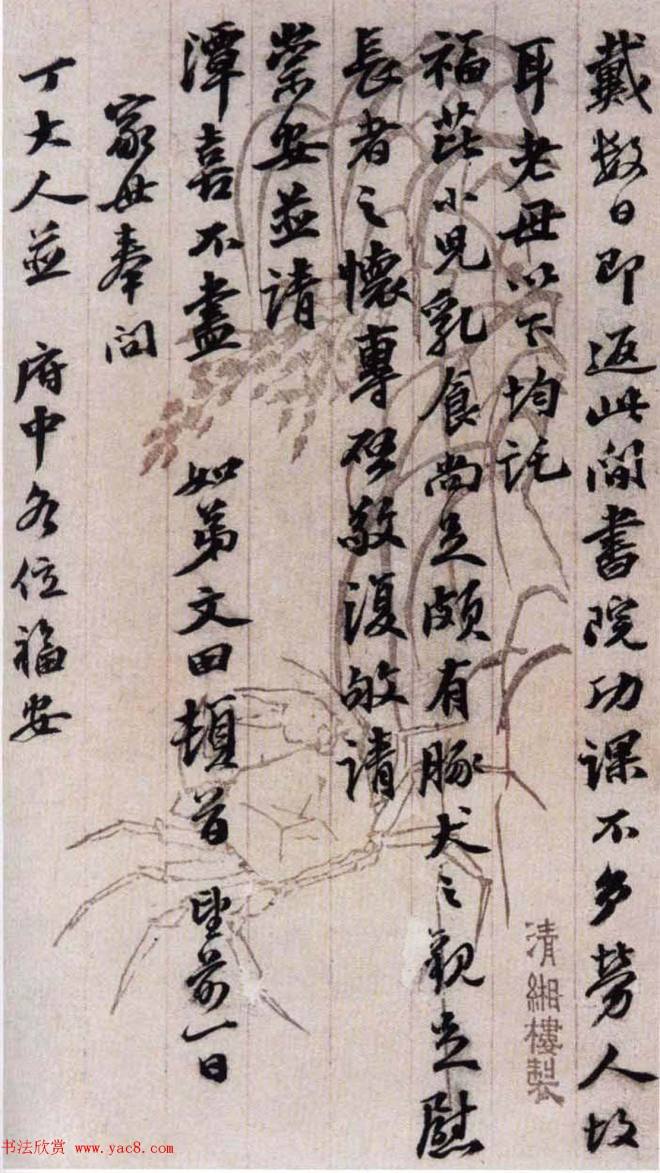 戴数日即返此間書院功課不多勞人故
耳老母以下均託
福茈小兒乳食尚足頗有豚犬之觀足慰
長者之懷專啓敬復敬請
崇安並請
潭喜不盡 如弟文田頓首 望前一日
家母奉問
丁大人並 府中各位福安
清緗樓製
书法欣赏 www.yac8.com